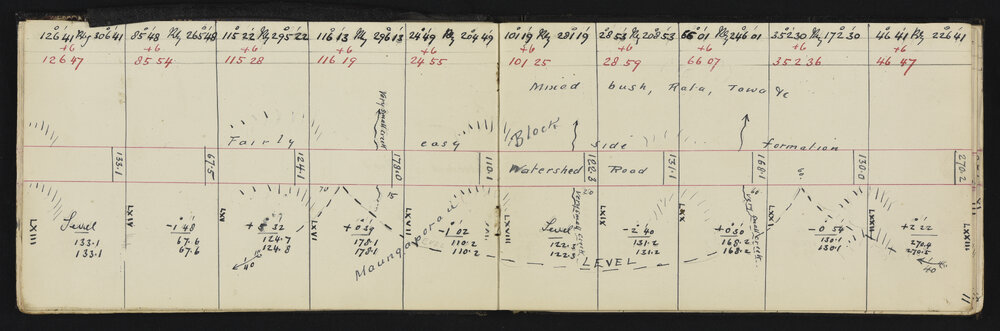 126°41' Rly 306°41 85°48 Rly 265°48 115°22 Rly 295°22 116°13 Rly 296°13 24°49 Rly 204°49 101°19 Rly 281°19 28°53 Rly 208°53 66°01 Rly 246°01 352°30 Rly 172°30 46°41 Rly 226°41
+6 +6 +6 +6 +6 +6 +6 +6 +6 +6
126 47 85 54 115 28 116 19 24 55 101 25 28 59 66 07 352 36 46 47
Mixed bush, Rata, Tawa &c
Very small creek
Block
Fairly easy side formation
133.1 67.5 124.1 178.0 110.1 Watershed 122.3 Road 131.1 168.1 130.0 270.2
LXIII LXIV LXV LXVI LXVII LXVIII LXIX LXX LXXI LXXII LXXIII
70 60
Level -1°48' +5°32 +0°39 -1°02 Level -2°40 +0°30 -0°54 +2°22
133.1 67.6 124.7 178.1 110.2 122.3 131.2 168.2 130.1 270.4
133.1 67.6 124.8 178.1 110.2 122.3 131.2 168.2 130.1 270.5
40 40
Maungaporau
LEVEL
11